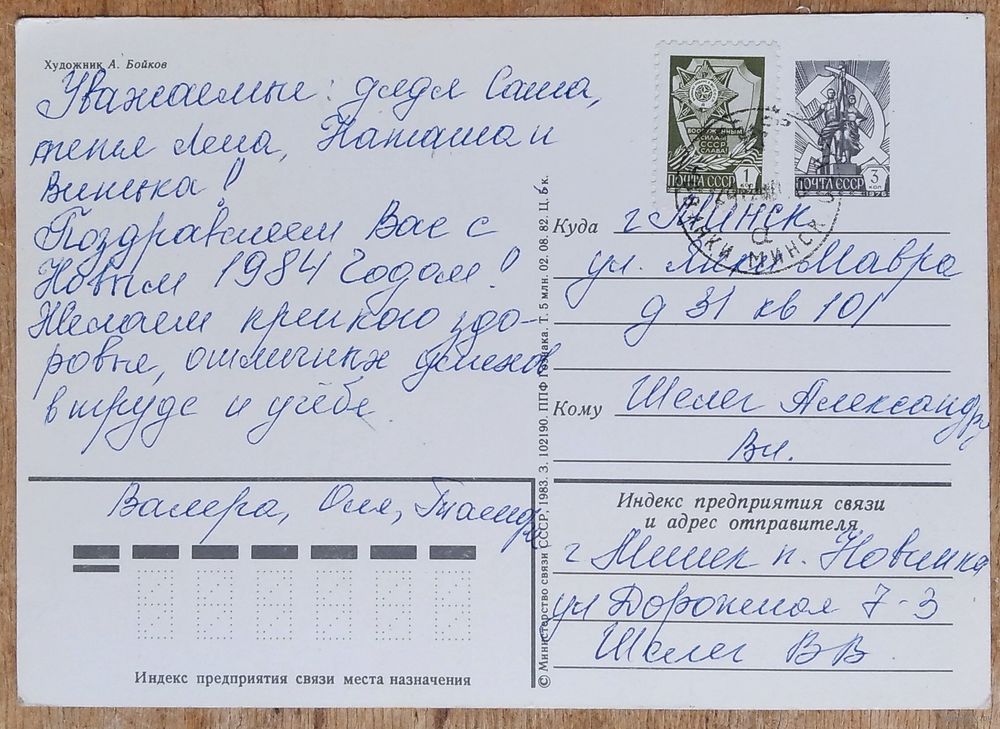 Художник А. Бойков
Уважаемые: дядя Саша,
тетя Лена, Наташа и
Виталька!
Поздравляем Вас с
Новым 1984 Годом!
Желаем крепкого здо-
ровья, отличных успехов
в труде и учёбе
Валера, Оля,
Индекс предприятия связи места назначения
© Министерство связи СССР, 1983. З. 102190. ППФ Гознака. Т. 5 млн. 02. 08. 82. Ц. 5 к.
ВООРУЖЕННЫМ
СИЛАМ
СССР
СЛАВА!
ПОЧТА СССР 1 КОП
ПОЧТА СССР 3 КОП
1976
МИНСК
Куда г Минск
ул. Янки Мавра
д 31 кв 101
Кому Шелег Александру
Вл.
Индекс предприятия связи
и адрес отправителя
г Минск п. Новинка
ул Дорожная 7-3
Шелег ВВ